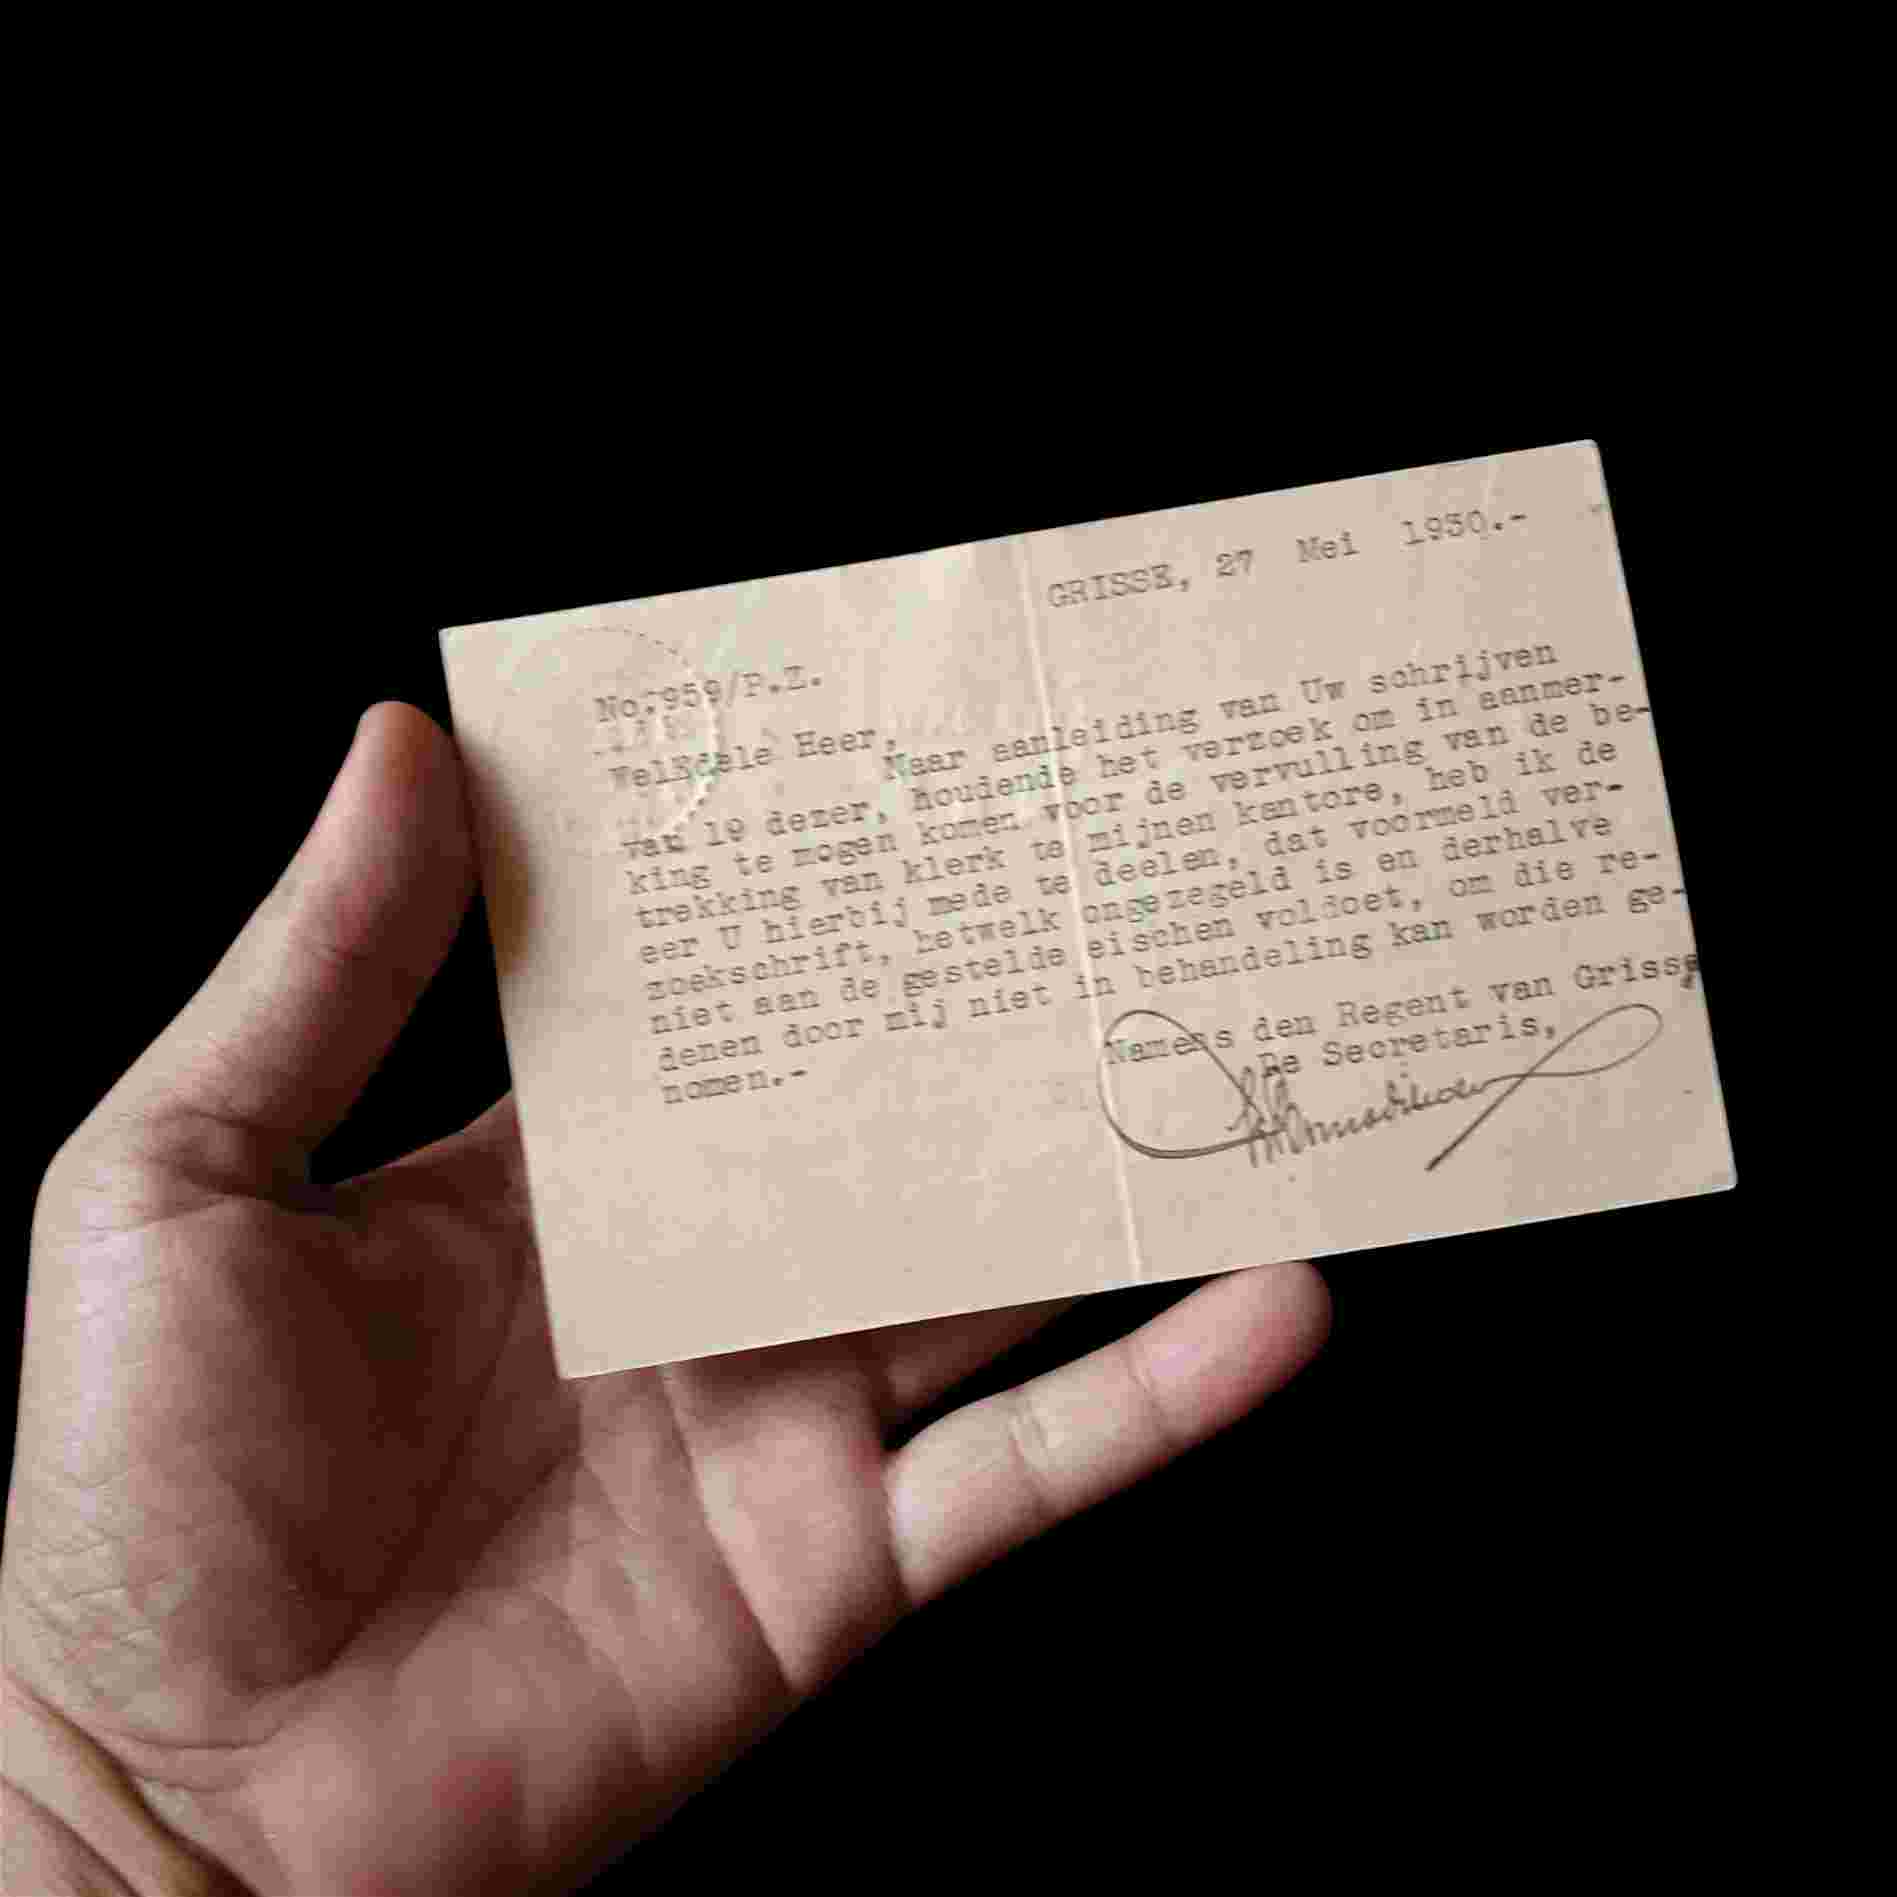 GRISSE, 27 Mei 1930.-
No.7959/P.Z.
WelEdele Heer,
Naar aanleiding van Uw schrijven
van 19 dezer, houdende het verzoek om in aanmer-
king te mogen komen voor de vervulling van de be-
trekking van klerk te mijnen kantore, heb ik de
eer U hierbij mede te deelen, dat voormeld ver-
zoekschrift, hetwelk ongezegeld is en derhalve
niet aan de gestelde eischen voldoet, om die re-
denen door mij niet in behandeling kan worden ge-
nomen.-
Namens den Regent van Grisse,
De Secretaris,